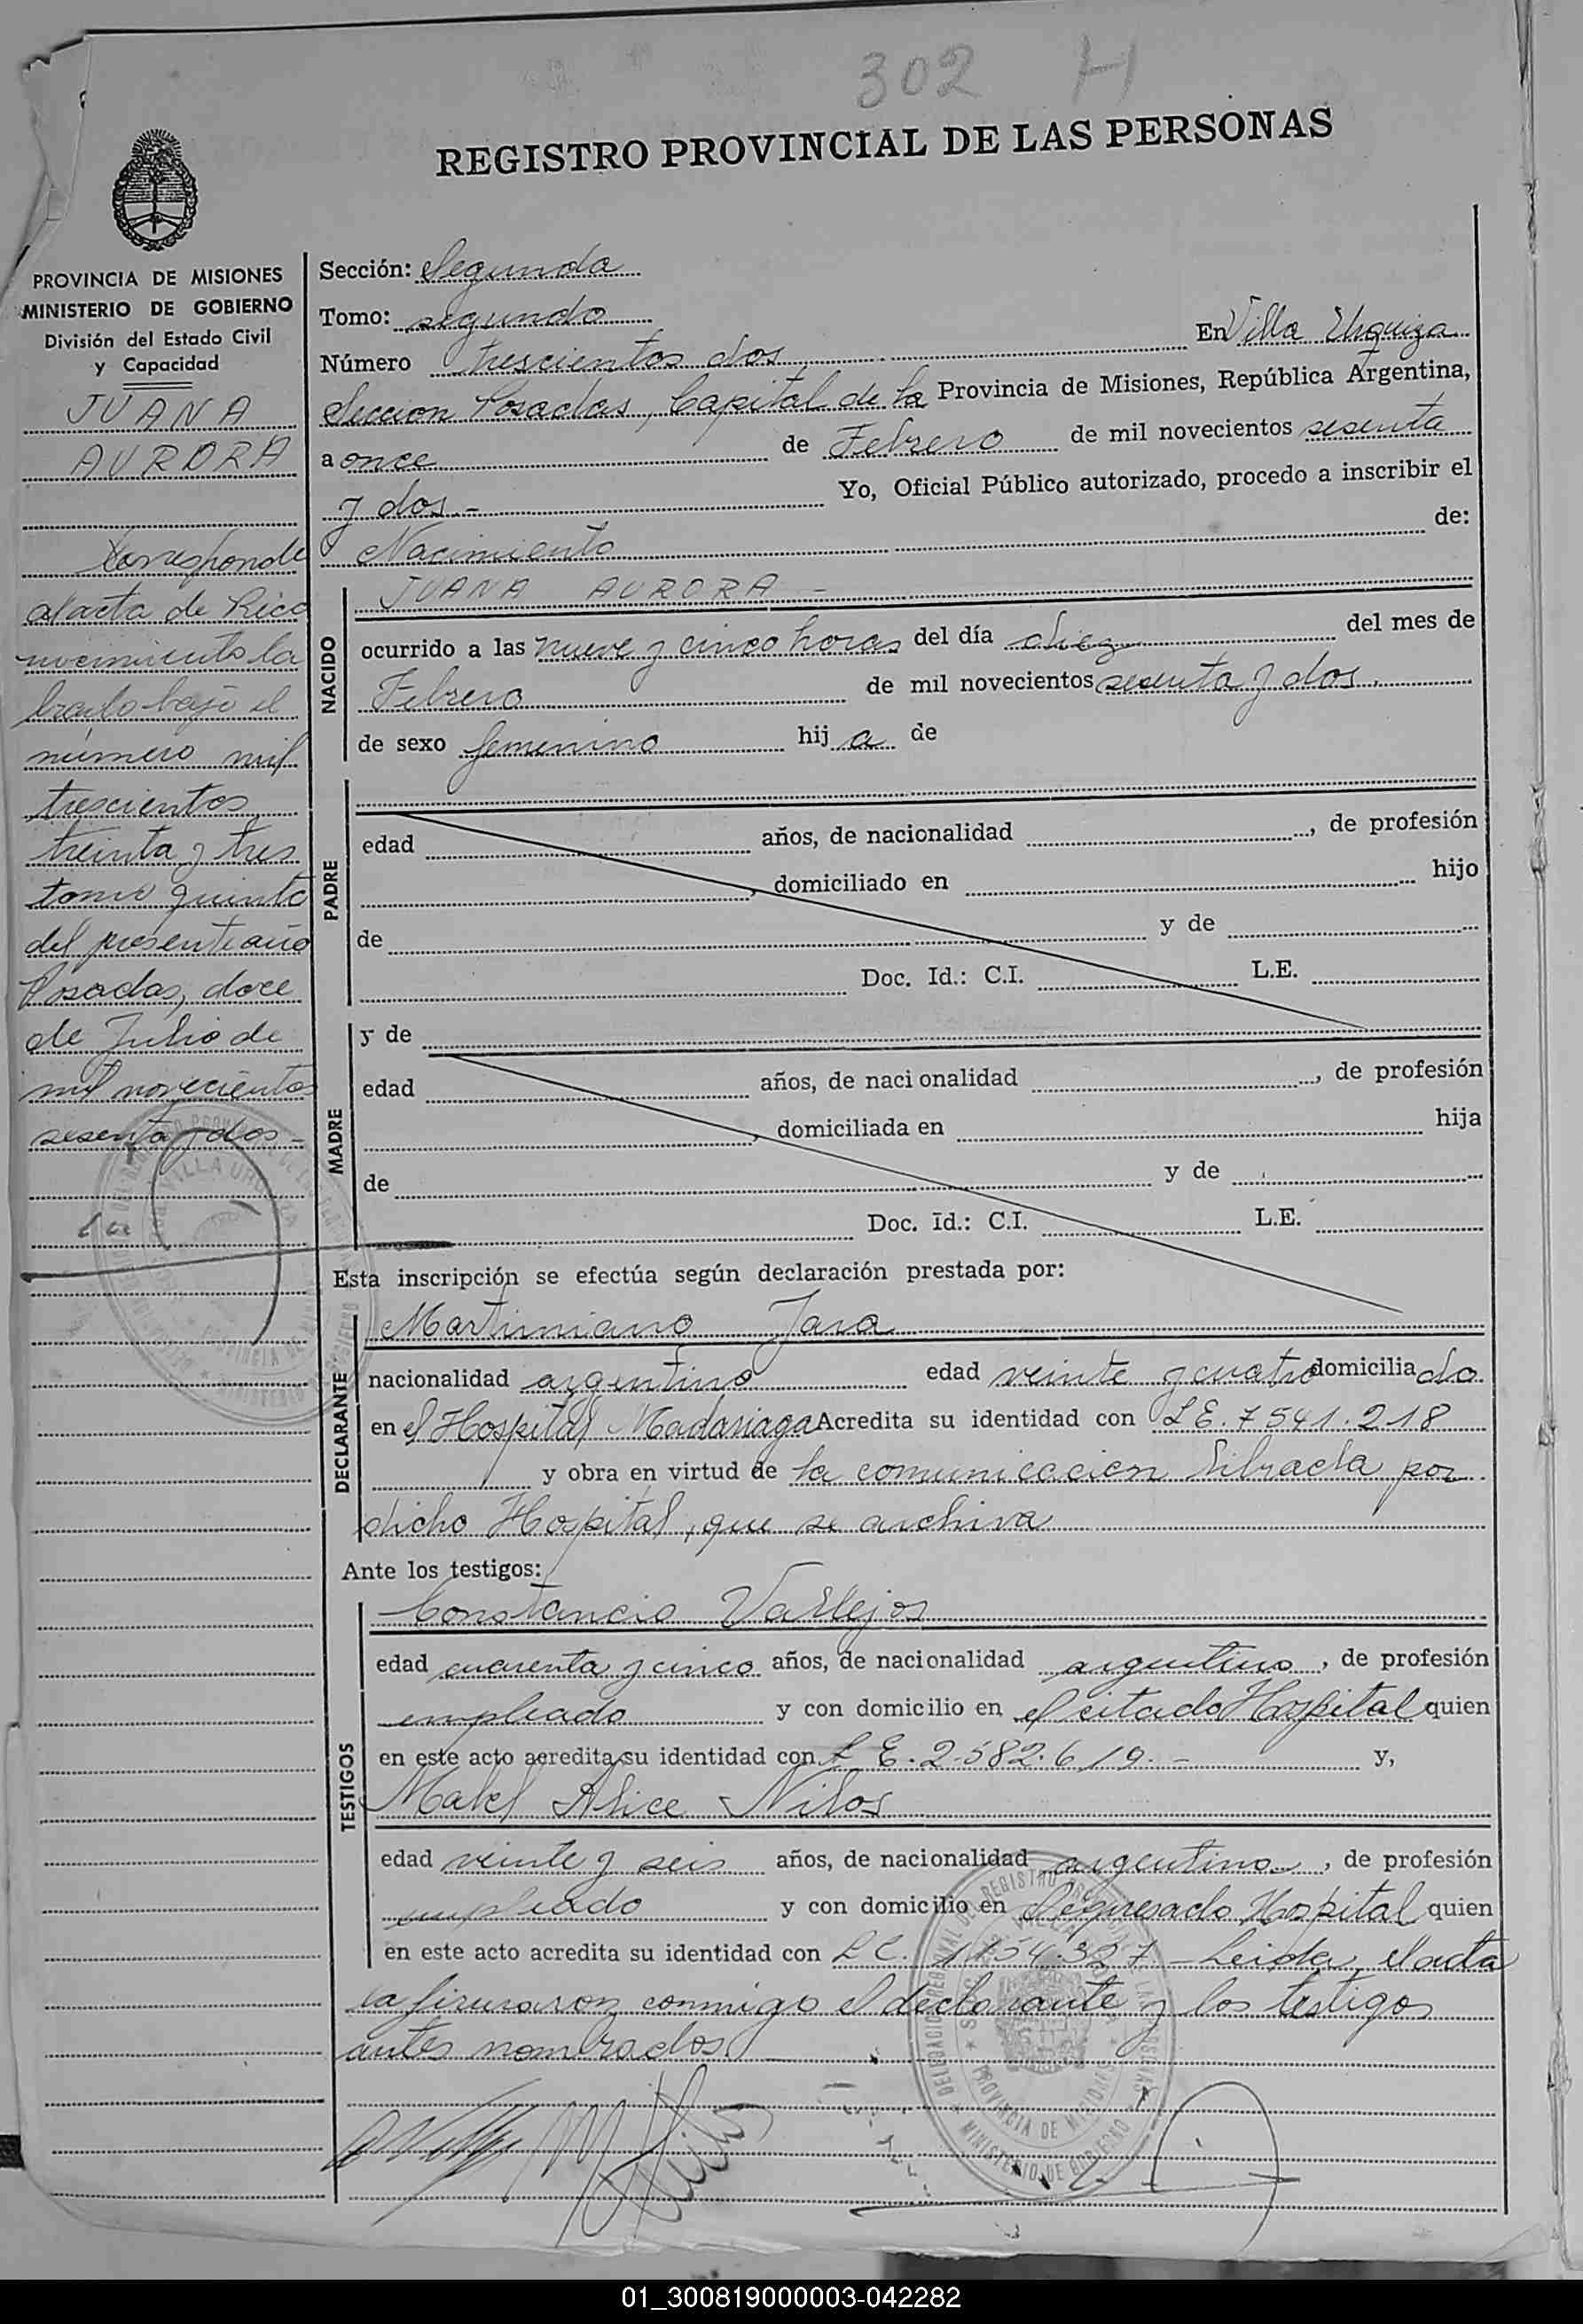 302 H
REGISTRO PROVINCIAL DE LAS PERSONAS
PROVINCIA DE MISIONES
MINISTERIO DE GOBIERNO
División del Estado Civil
y Capacidad
JUANA
AURORA
Corresponde
al acta de Reco
nocimiento la
brado bajo el
número mil
trescientos
treinta y tres
tomo quinto
del presente año
Posadas, doce
de Julio de
mil novecientos
sesenta y dos -
Sección: Segunda
Tomo: segundo
Número trescientos dos En Villa Urquiza
Seccion Posadas, Capital de la Provincia de Misiones, República Argentina,
a once de Febrero de mil novecientos sesenta
y dos.- Yo, Oficial Público autorizado, procedo a inscribir el
Nacimiento de:
NACIDO
JUANA AURORA -
ocurrido a las nueve y cinco horas del día diez del mes de
Febrero de mil novecientos sesenta y dos.
de sexo femenino hij a de
PADRE
edad años, de nacionalidad , de profesión
, domiciliado en hijo
de y de
Doc. Id.: C.I. L.E.
MADRE
y de
edad años, de naci onalidad , de profesión
, domiciliada en hija
de y de
Doc. Id.: C.I. L.E.
Esta inscripción se efectúa según declaración prestada por:
DECLARANTE
Martiniano Jara
nacionalidad argentino edad veinte y cuatro domicilia do
en el Hospital Madariaga Acredita su identidad con L E. 7 541.218
y obra en virtud de la comunicacion librada por
dicho Hospital, que se archiva
Ante los testigos:
TESTIGOS
Constancio Vallejos
edad cuarenta y cinco años, de nacionalidad argentino, de profesión
empleado y con domicilio en el citado Hospital quien
en este acto acredita su identidad con L E. 2.582.619. - y,
Mabel Alice Nilos
edad veinte y seis años, de nacionalidad argentina, de profesión
empleado y con domicilio en el expresado Hospital quien
en este acto acredita su identidad con L C. 1.154.327. - Leida el acta
la firmaron conmigo el declarante y los testigos
antes nombrados.
DELEGACION REGIONAL DEL REGISTRO PROVINCIAL DE LAS PERSONAS
PROVINCIA DE MISIONES
MINISTERIO DE GOBIERNO
01_300819000003-042282